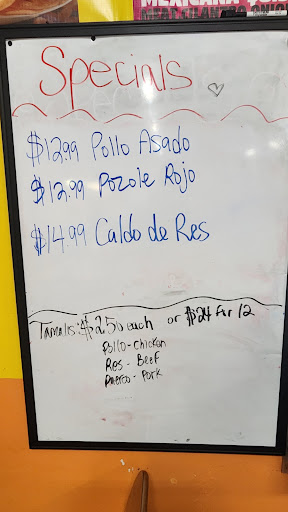 MEXICANA
Specials
$12.99 Pollo Asado
$12.99 Pozole Rojo
$14.99 Caldo de Res
Tamales: $2.50 each or $24 for 12
Pollo - Chicken
Res - Beef
Puerco - Pork